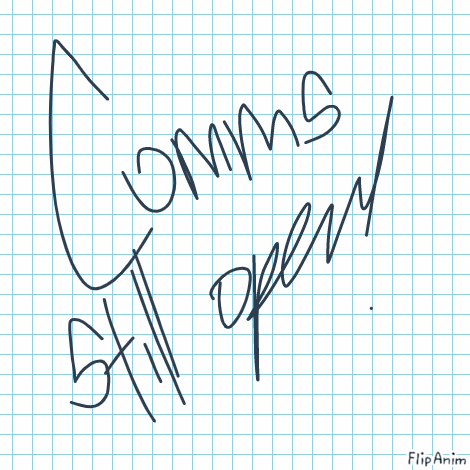 Comms
Still open!
FlipAnim